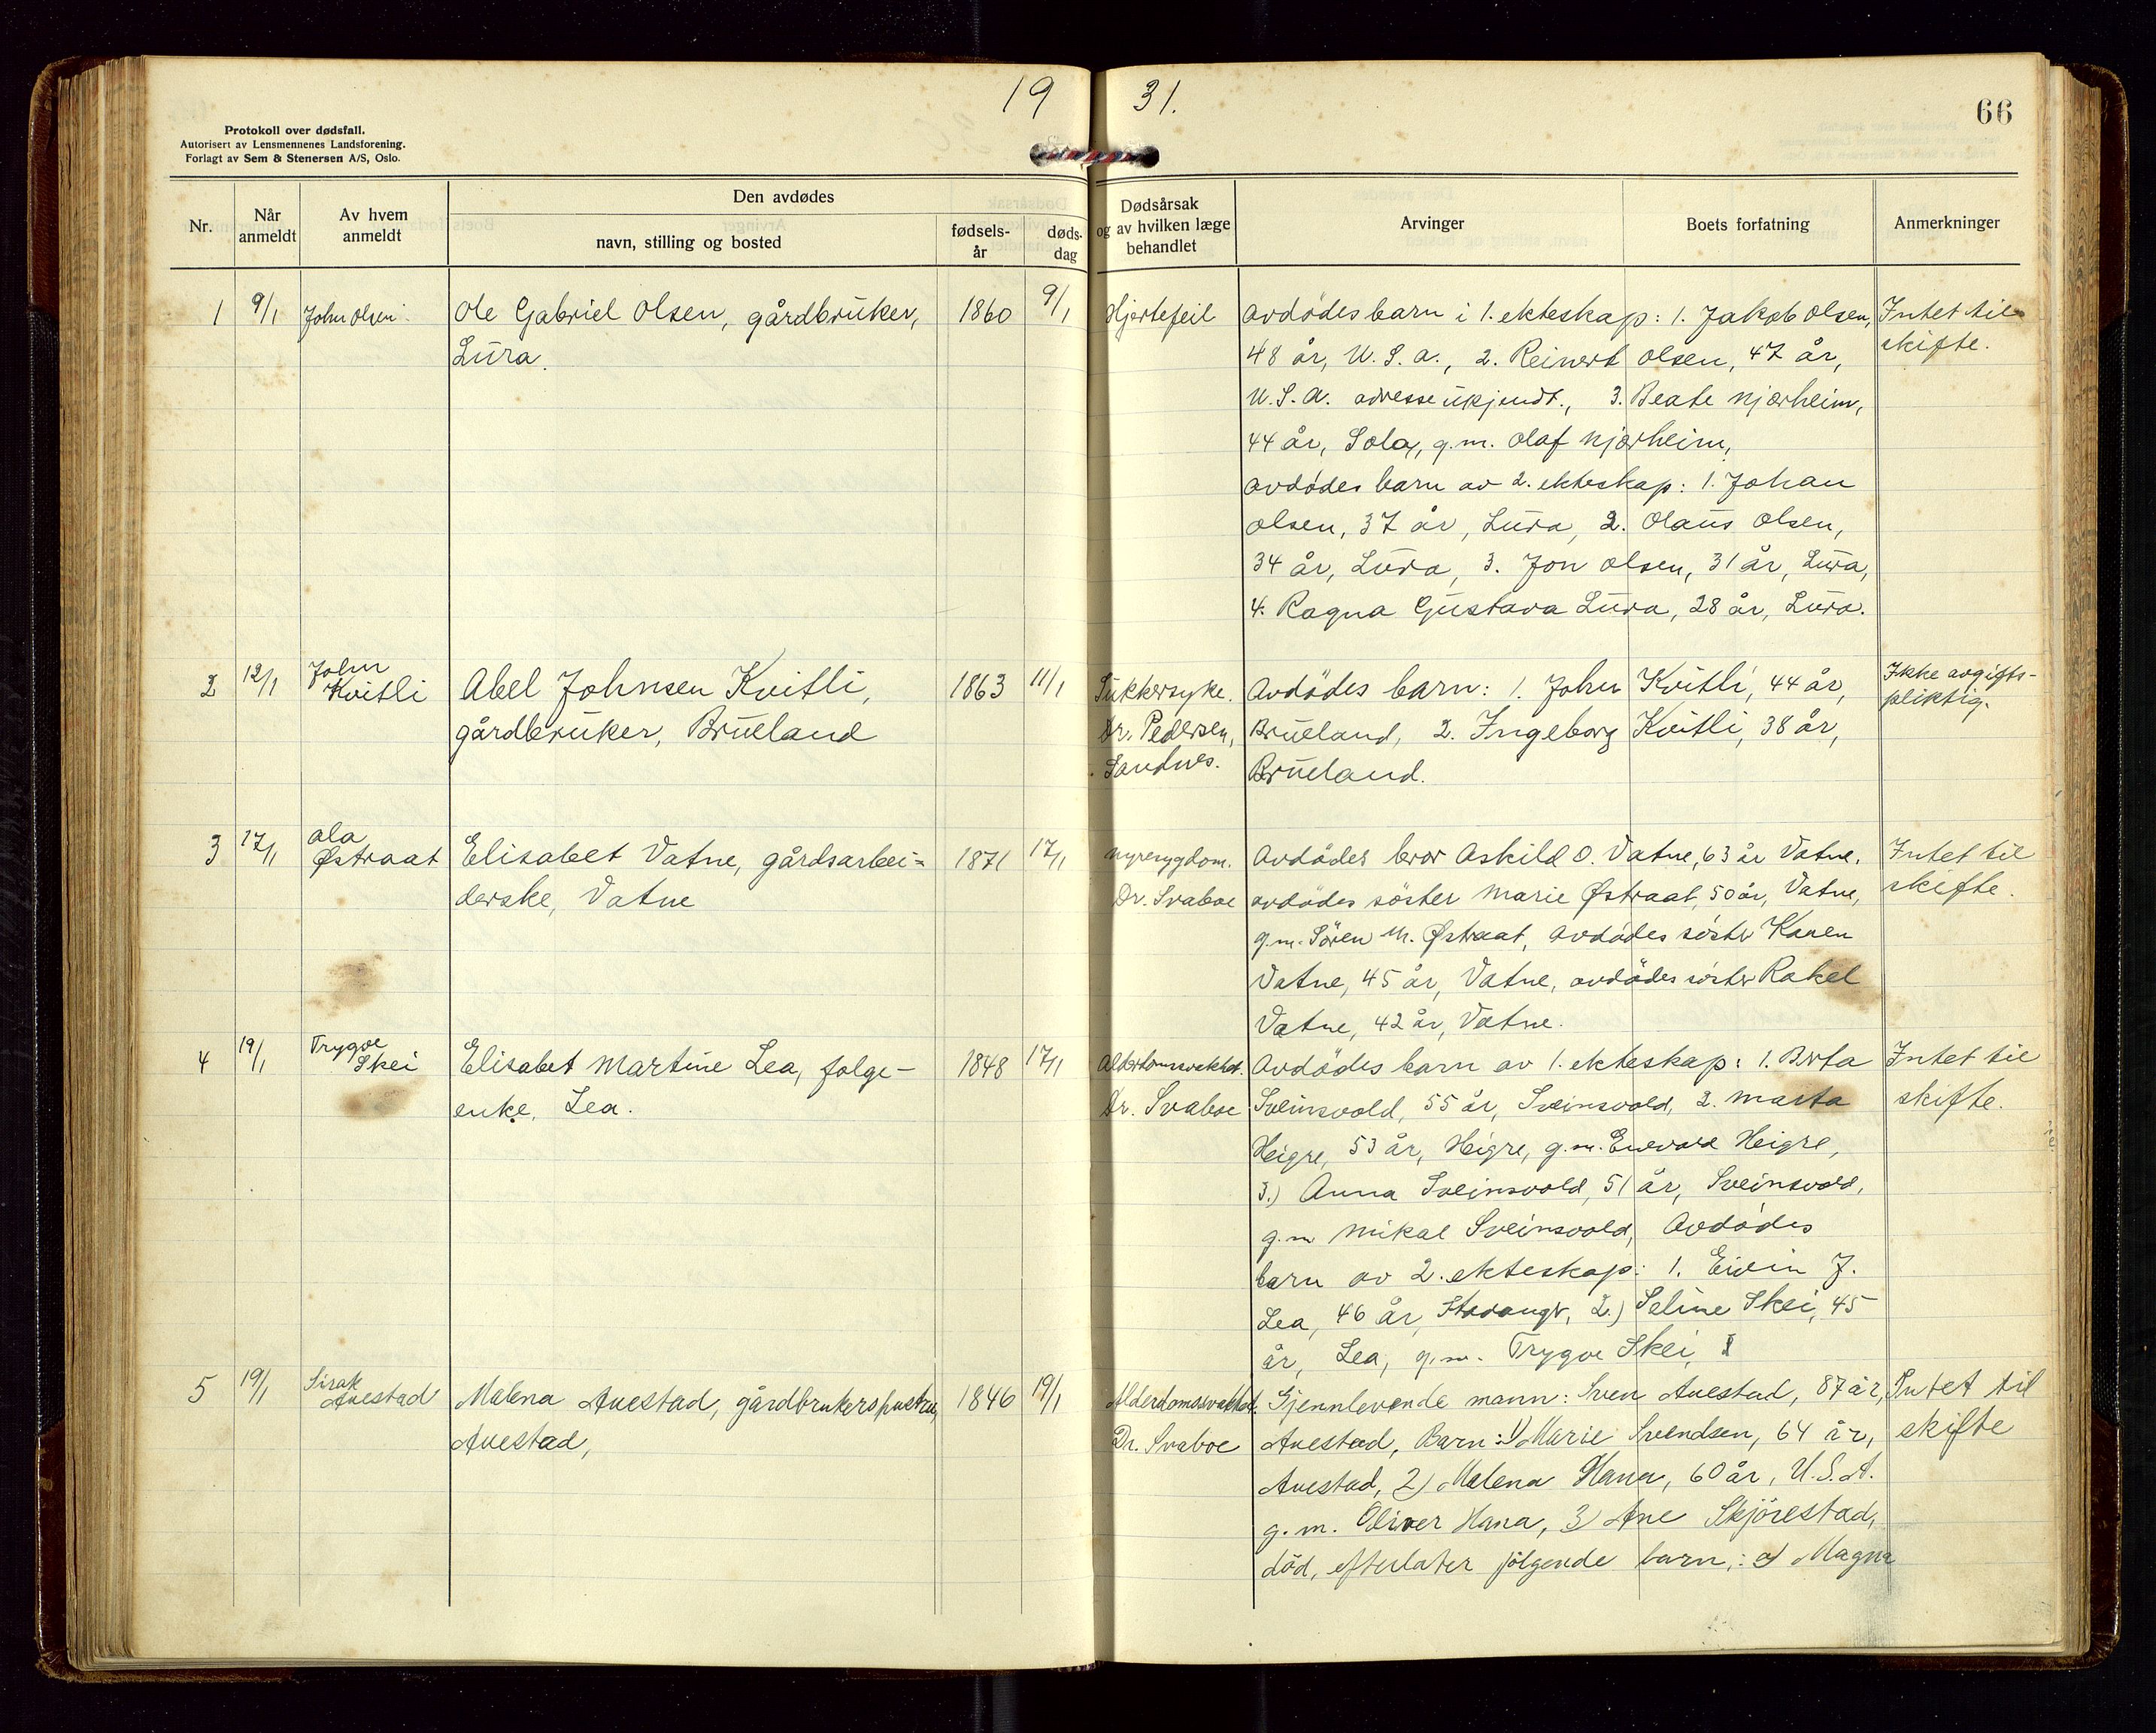 19 31.
66
Protokoll over dødsfall.
Autorisert av Lensmennenes Landsforening.
Forlagt av Sem & Stenersen A/S, Oslo.
Nr.
Når anmeldt
Av hvem anmeldt
Den avdødes
navn, stilling og bosted
fødsels-år
døds-dag
Dødsårsak og av hvilken læge behandlet
Arvinger
Boets forfatning
Anmerkninger
1 9/1 John Olsen Ole Gabriel Olsen, gårdbruker, 1860 9/1 Hjertefeil Avdødes barn i 1. ekteskap: 1. Jakob Olsen, Intet til
Lura. 48 år, U.S.A., 2. Reinert Olsen, 47 år, skifte.
U.S.A. adresse ukjendt., 3. Beate Njærheim,
44 år, Sola, g.m. Olaf Njærheim,
Avdødes barn av 2. ekteskap: 1. Johan
Olsen, 37 år, Lura, 2. Olaus Olsen,
34 år, Lura, 3. Jon Olsen, 31 år, Lura,
4. Ragna Gustava Lura, 28 år, Lura.
2 12/1 John Kvitli Abel Johnsen Kvitli, 1863 11/1 Sukkersyke. Avdødes barn: 1. John Kvitli, 44 år, Ikke avgifts-
gårdbruker, Brueland Dr. Pedersen, Brueland, 2. Ingeborg Kvitli, 38 år, pliktig.
Sandnes. Brueland.
3 17/1 Ola Østraat Elisabet Vatne, gårdsarbei- 1871 17/1 Nyresygdom. Avdødes bror Askild O. Vatne, 63 år Vatne. Intet til
derske, Vatne Dr. Svaboe avdødes søster Marie Østraat, 50 år, Vatne, skifte.
g.m. Søren M. Østraat, avdødes søster Karen
Vatne, 45 år, Vatne, avdødes søster Rakel
Vatne, 42 år, Vatne.
4 19/1 Trygve Skei Elisabet Martine Lea, følge- 1848 17/1 Alderdomsvakhet. Avdødes barn av 1. ekteskap: 1. Berta Intet til
enke, Lea. Dr. Svaboe Sveinsvold, 55 år, Sveinsvold, 2. Marta skifte.
Heigre, 53 år, Heigre, g.m. Enevald Heigre,
3.) Anna Sveinsvold, 51 år, Sveinsvold,
g.m Mikal Sveinsvold, Avdødes
barn av 2. ekteskap: 1. Eivin J.
Lea, 46 år, Stavanger, 2.) Seline Skei, 45
år, Lea, g.m. Trygve Skei,
5 19/1 Sirak Auestad Malena Auestad, gårdbrukershustru, 1846 19/1 Alderdomsvakhet. Gjennlevende mann: Sven Auestad, 87 år, Intet til
Auestad, Dr. Svaboe Auestad, Barn: 1) Marie Svendsen, 64 år, skifte
Auestad, 2) Malena Hana, 60 år, U.S.A.
g.m. Oliver Hana, 3) Ane Skjørestad,
død, efterlater følgende barn,: a) Magna